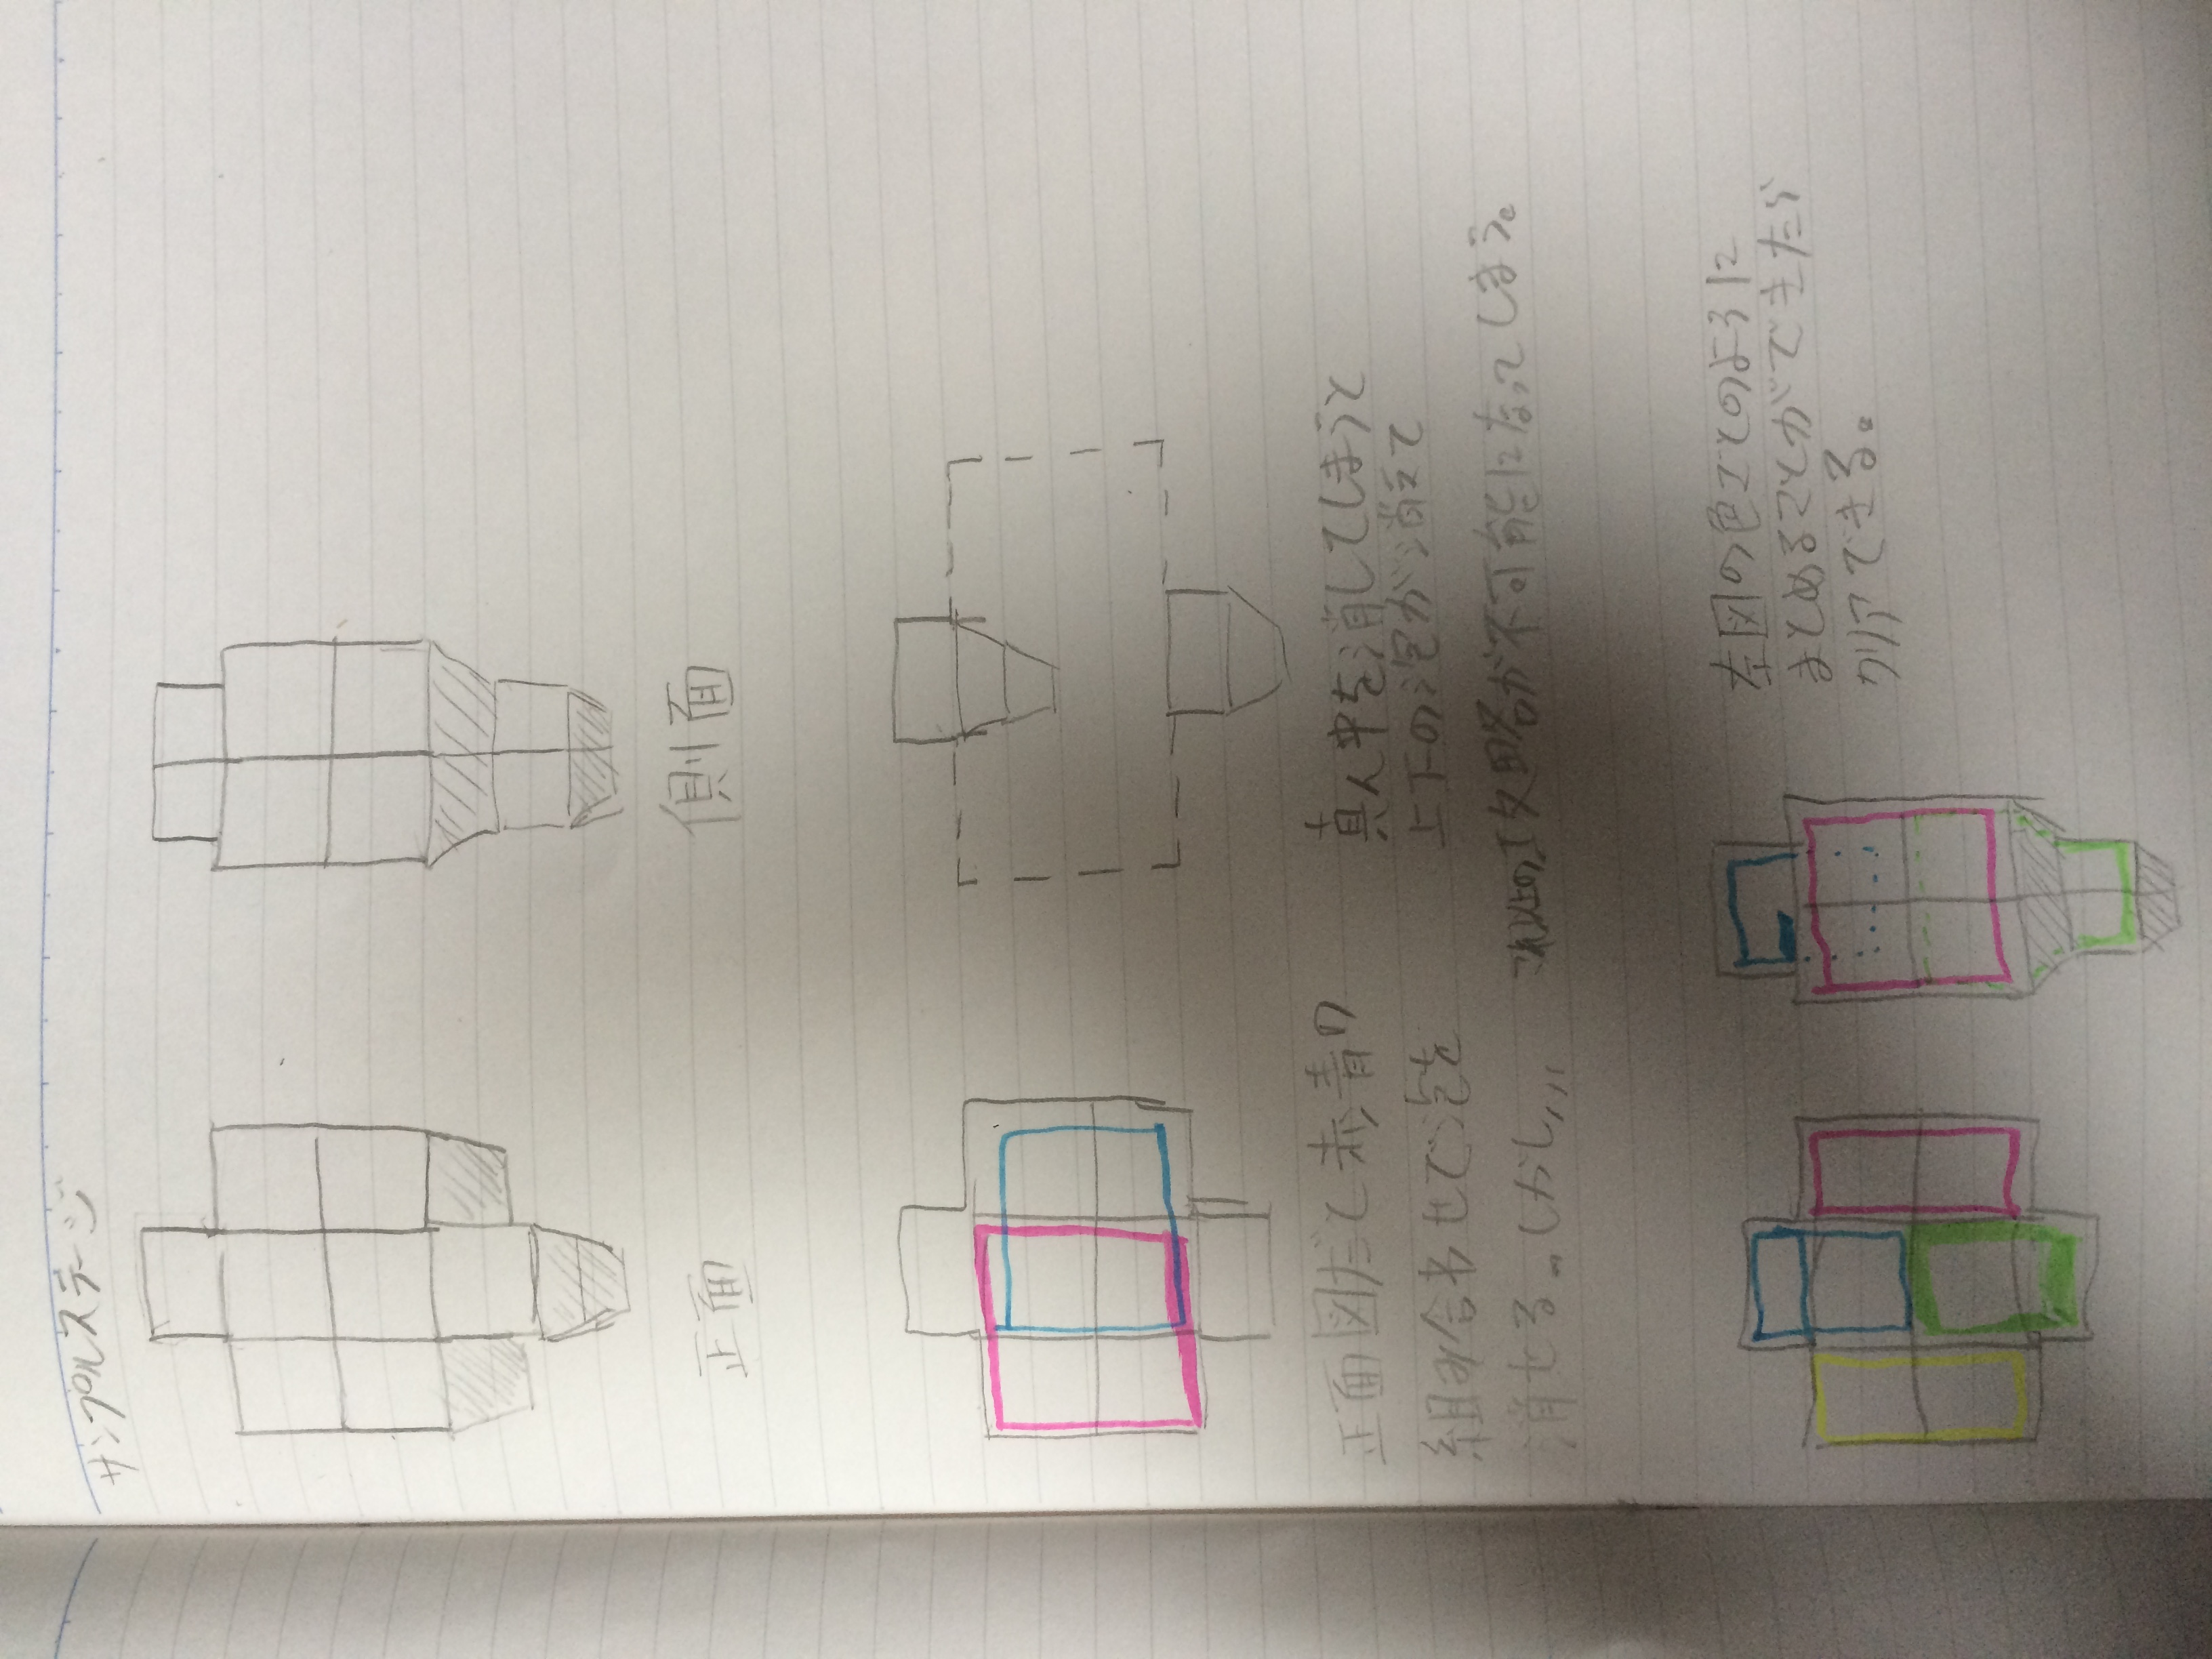 サンプルステージ
正面
側面
正面図だと赤青の
組み合わせで泡を
消せる。しかし...
真ん中を消してしまうと
上下の泡が消えて
これ以上の攻略が不可能になってしまう。
左図の色ごとのように
まとめることができたら
クリアできる。